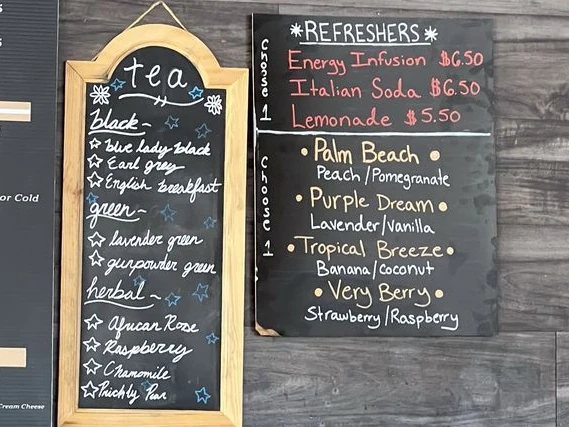 or Cold
Cream Cheese
tea
black~
blue lady black
Earl grey
English breakfast
green~
lavender green
gunpowder green
herbal~
African Rose
Raspberry
Chamomile
Prickly Pear
*REFRESHERS*
Choose 1
Energy Infusion $6.50
Italian Soda $6.50
Lemonade $5.50
Choose 1
• Palm Beach •
Peach/Pomegranate
• Purple Dream •
Lavender/Vanilla
• Tropical Breeze •
Banana/Coconut
• Very Berry •
Strawberry/Raspberry